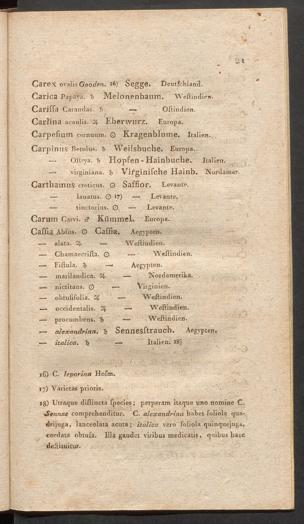 21
Carex ovalis Gooden. 16) Segge. Deutſchland.
Carica Papaya. ♄ Melonenbaum. Weſtindien.
Cariſſa Carandas. ♄ — Oſtindien.
Carlina acaulis. ♃ Eberwurz. Europa.
Carpeſium cernuum. ⊙ Kragenblume. Italien.
Carpinus Betulus. ♄ Weiſsbuche. Europa.
— Oſtrya. ♄ Hopfen-Hainbuche. Italien.
— virginiana. ♄ Virginiſche Hainb. Nordamer.
Carthamus creticus. ⊙ Safflor. Levante.
— lanatus. ⊙ 17) — Levante.
— tinctorius. ⊙ — Levante.
Carum Carvi. ♂ Kümmel. Europa.
Caſſia Abſus. ⊙ Caſſia. Aegypten.
— alata. ♃ — Weſtindien.
— Chamaecriſta. ⊙ — Weſtindien.
— Fiſtula. ♄ — Aegypten.
— marilandica. ♃ — Nordamerika.
— nictitans. ⊙ — Virginien.
— obtuſifolia. ♃ — Weſtindien.
— occidentalis. ♃ — Weſtindien.
— procumbens. ♄ — Weſtindien.
— alexandrina. ♄ Sennesſtrauch. Aegypten.
— italica. ♄ — Italien. 18)
16) C. leporina Hoſm.
17) Varietas prioris.
18) Utraque diſtincta ſpecies; perperam itaque uno nomine C.
Sennae comprehenditur. C. alexandrina habet foliola qua-
drijuga, lanceolata acuta; italica vero foliola quinquejuga,
cordata obtuſa. Illa gaudet viribus medicatis, quibus haec
deſtituitur.